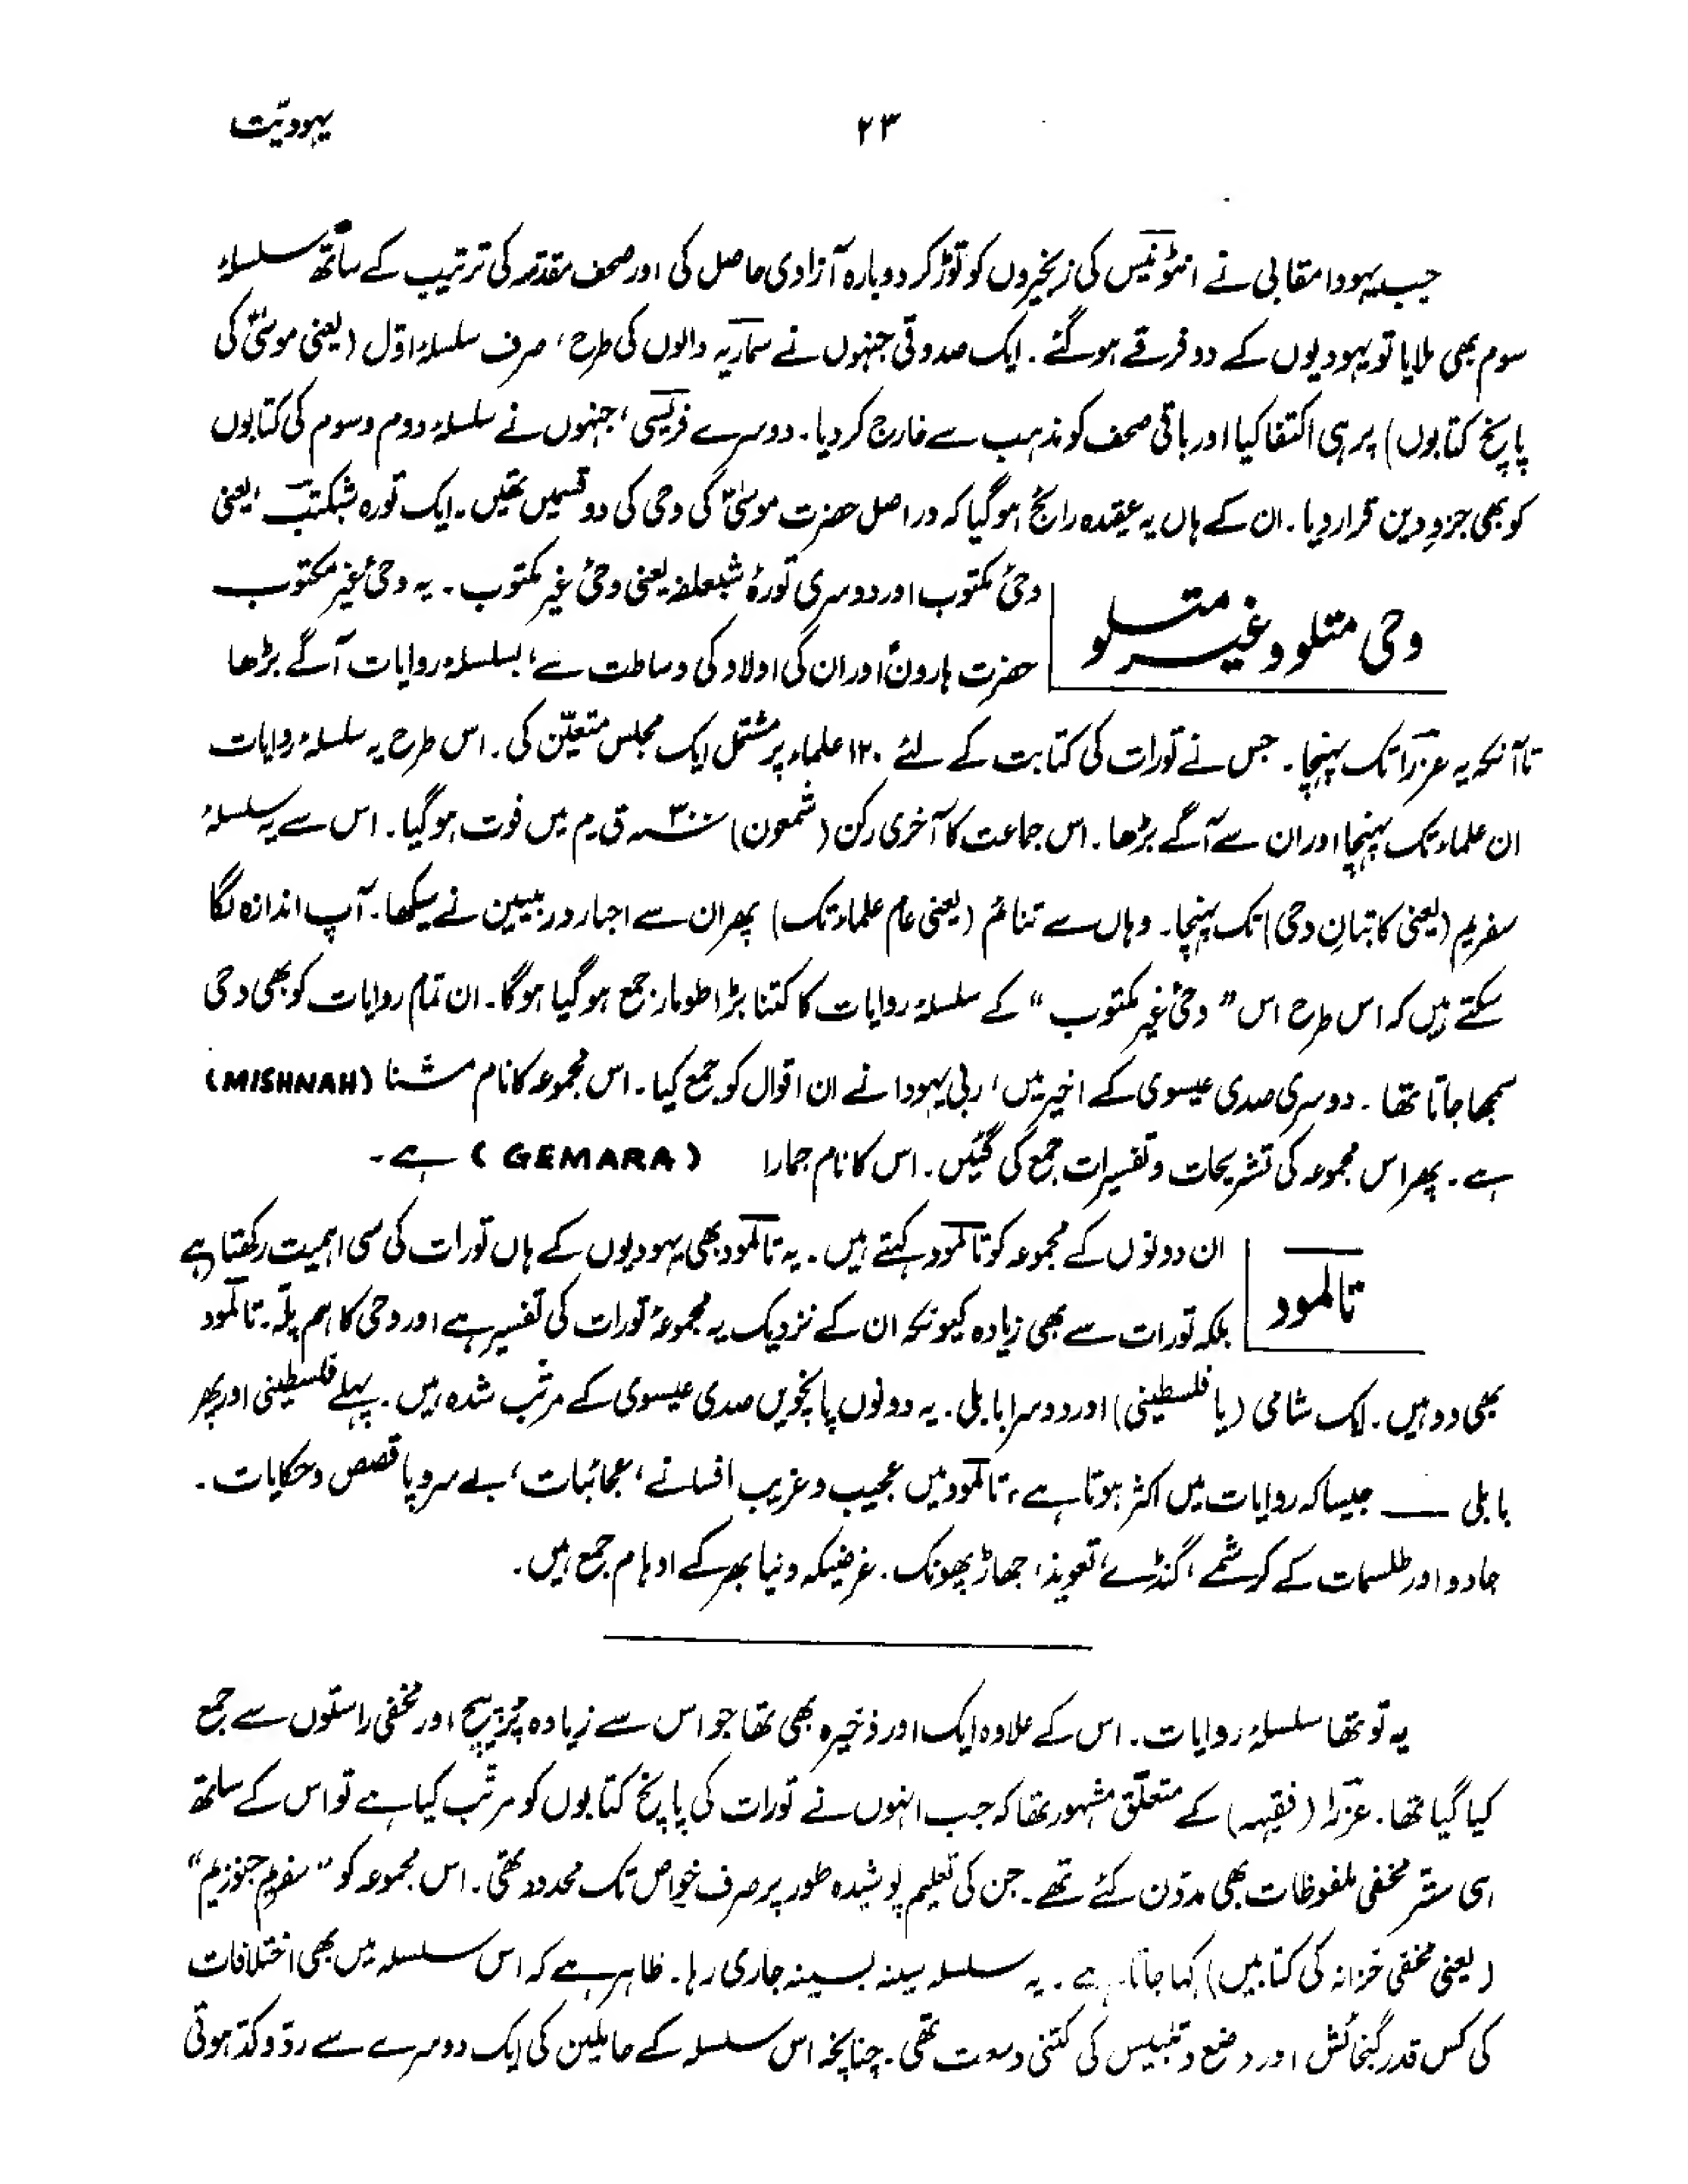 یہودیّت
۲۳
جب یہودا مقابی نے انٹونیس کی زنجیروں کو توڑ کر دوبارہ آزادی حاصل کی اور صحف مقدّسہ کی ترتیب کے ساتھ سلسلۂ
سوم بھی ملایا تو یہودیوں کے دو فرقے ہوگئے۔ ایک صدوقی جنہوں نے سماریہ والوں کی طرح، صرف سلسلۂ اوّل (یعنی موسیٰؑ کی
پانچ کتابوں) پر ہی اکتفا کیا اور باقی صحف کو مذہب سے خارج کر دیا۔ دوسرے فریسی، جنہوں نے سلسلۂ دوم و سوم کی کتابوں
کو بھی جزوِ دین قرار دیا۔ ان کے ہاں یہ عقیدہ رائج ہوگیا کہ دراصل حضرت موسیٰؑ کی وحی کی دو قسمیں تھیں۔ ایک تورہ شبکتب، یعنی
وحی متلو و غیر متلو
وحیٔ مکتوب اور دوسری تورۂ شبعلفہ یعنی وحیٔ غیر مکتوب۔ یہ وحیٔ غیر مکتوب
حضرت ہارونؑ اور ان کی اولاد کی وساطت سے، بسلسلۂ روایات آگے بڑھا
تاآنکہ یہ عزرا تک پہنچا۔ جس نے تورات کی کتابت کے لئے ۱۲۰ علماء پر مشتمل ایک مجلس متعیّن کی۔ اس طرح یہ سلسلۂ روایات
ان علماء تک پہنچا اور ان سے آگے بڑھا۔ اس جماعت کا آخری رکن (شمعون) ۳۰۰؁ ق م میں فوت ہوگیا۔ اس سے یہ سلسلۂ
سفریم (یعنی کاتبانِ وحی) تک پہنچا۔ وہاں سے تنائم (یعنی عام علماء تک) پھر ان سے احبار و ربیین نے سیکھا۔ آپ اندازہ لگا
سکتے ہیں کہ اس طرح اس ”وحیٔ غیر مکتوب“ کے سلسلۂ روایات کا کتنا بڑا طومار جمع ہوگیا ہوگا۔ ان تمام روایات کو بھی وحی
سمجھا جاتا تھا۔ دوسری صدی عیسوی کے اخیر میں، ربی یہودا نے ان اقوال کو جمع کیا۔ اس مجموعہ کا نام مشنا (MISHNAH)
ہے۔ پھر اس مجموعہ کی تشریحات و تفسیرات جمع کی گئیں۔ اس کا نام جمارا (GEMARA) ہے۔
تالمود
ان دونوں کے مجموعہ کو تالمود کہتے ہیں۔ یہ تالمود بھی یہودیوں کے ہاں تورات کی سی اہمیت رکھتا ہے
بلکہ تورات سے بھی زیادہ کیونکہ ان کے نزدیک یہ مجموعۂ تورات کی تفسیر ہے اور وحی کا ہم پلّہ۔ تالمود
بھی دو ہیں۔ ایک شامی (یا فلسطینی) اور دوسرا بابلی۔ یہ دونوں پانچویں صدی عیسوی کے مرتّب شدہ ہیں۔ پہلے فلسطینی اور پھر
بابلی ـــــ جیسا کہ روایات میں اکثر ہوتا ہے، تالمود میں عجیب و غریب افسانے، عجائبات، بے سروپا قصص و حکایات۔
جادو اور طلسمات کے کرشمے، گنڈے، تعویذ، جھاڑ پھونک۔ غرضیکہ دنیا بھر کے اوہام جمع ہیں۔
یہ تو تھا سلسلۂ روایات۔ اس کے علاوہ ایک اور ذخیرہ بھی تھا جو اس سے زیادہ پُرپیچ اور مخفی راستوں سے جمع
کیا گیا تھا۔ عزرا (فقیہہ) کے متعلّق مشہور تھا کہ جب انہوں نے تورات کی پانچ کتابوں کو مرتّب کیا ہے تو اس کے ساتھ
ہی ستّر مخفی ملفوظات بھی مدوّن کئے تھے۔ جن کی تعلیم پوشیدہ طور پر صرف خواص تک محدود تھی۔ اس مجموعہ کو ”سفریم جنوزیم“
(یعنی مخفی خزانہ کی کتابیں) کہا جاتا ہے۔ یہ سلسلہ سینہ بسینہ جاری رہا۔ ظاہر ہے کہ اس سلسلہ میں بھی اختلافات
کی کس قدر گنجائش اور وضع و تلبیس کی کتنی وسعت تھی۔ چنانچہ اس سلسلہ کے حاملین کی ایک دوسرے سے ردّ و کدّ ہوتی